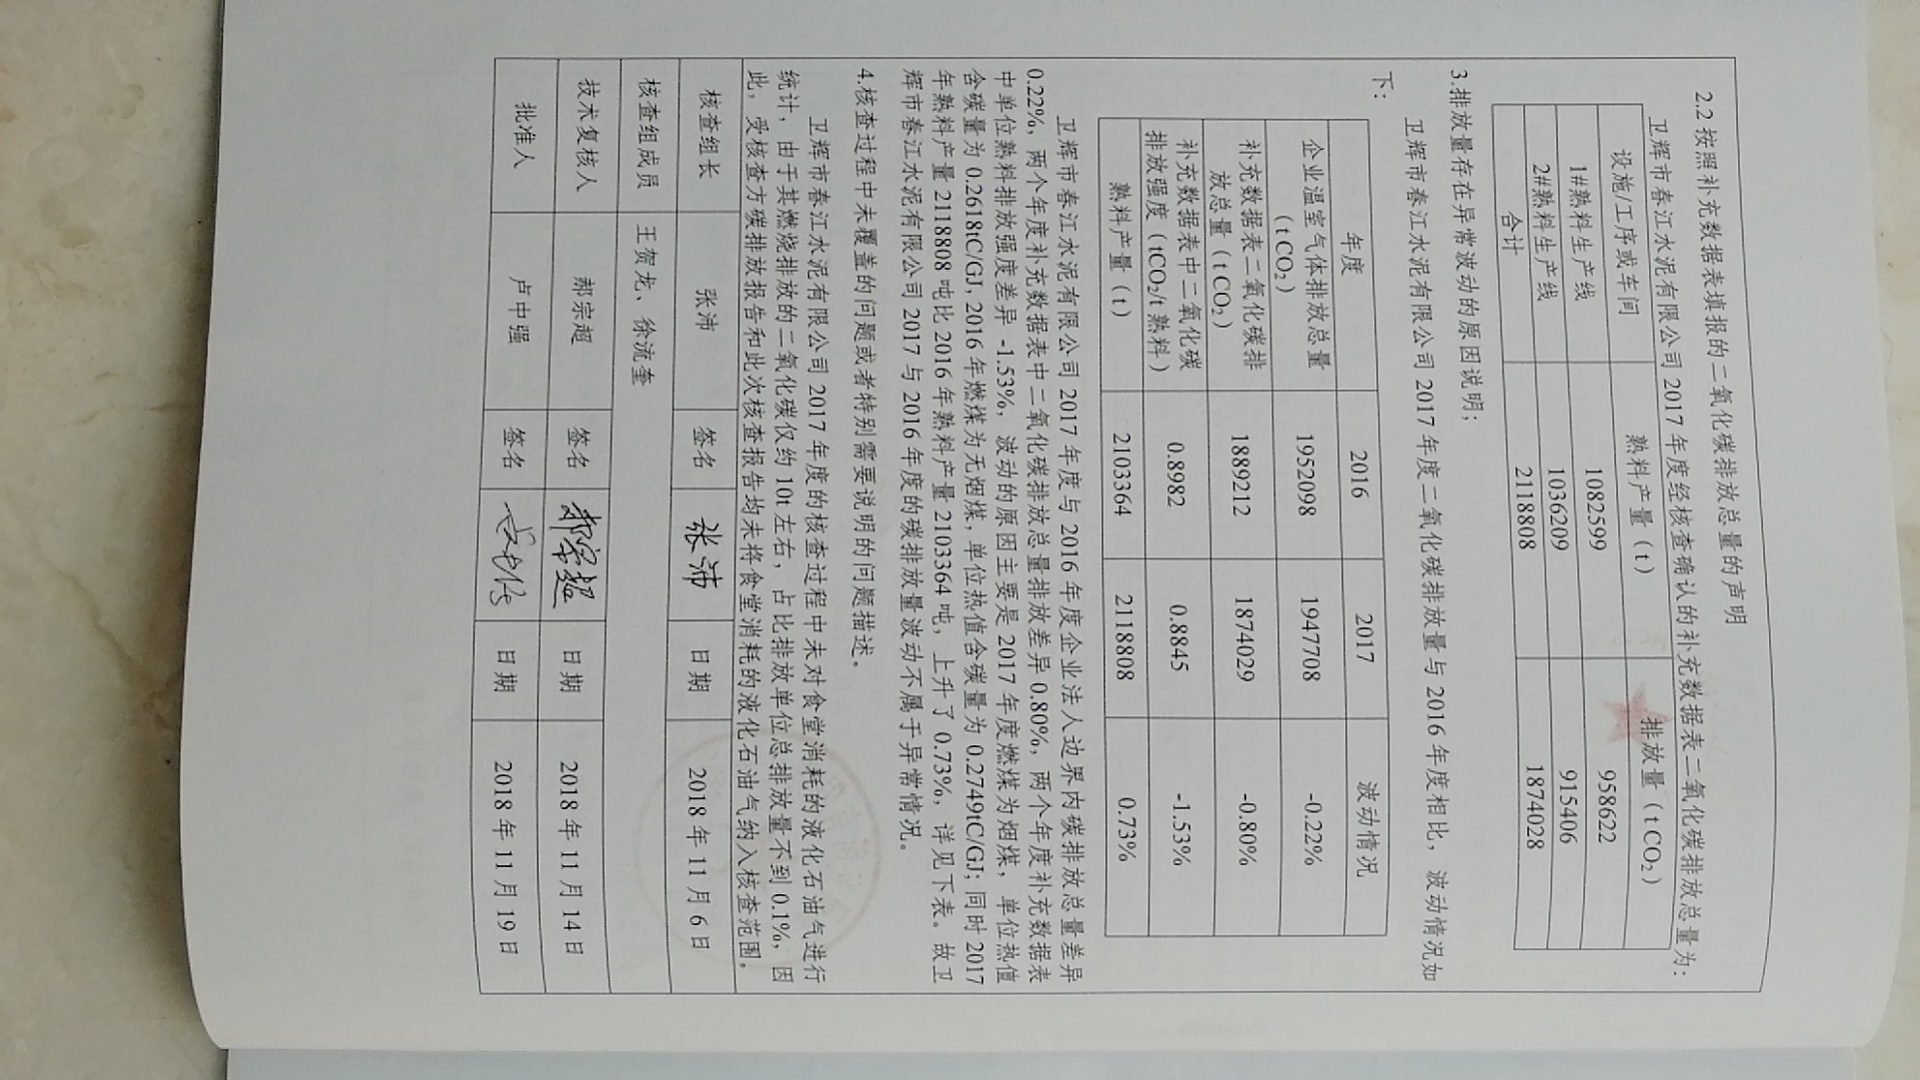 2.2 按照补充数据表填报的二氧化碳排放总量的声明
卫辉市春江水泥有限公司 2017 年度经核查确认的补充数据表二氧化碳排放总量为：
设施/工序或车间 熟料产量（t） 排放量（t CO₂）
1#熟料生产线 1082599 958622
2#熟料生产线 1036209 915406
合计 2118808 1874028
3.排放量存在异常波动的原因说明；
卫辉市春江水泥有限公司 2017 年度二氧化碳排放量与 2016 年度相比，波动情况如
下：
年度 2016 2017 波动情况
企业温室气体排放总量
（t CO₂） 1952098 1947708 -0.22%
补充数据表二氧化碳排
放总量（t CO₂） 1889212 1874029 -0.80%
补充数据表中二氧化碳
排放强度（tCO₂/t 熟料） 0.8982 0.8845 -1.53%
熟料产量（t） 2103364 2118808 0.73%
卫辉市春江水泥有限公司 2017 年度与 2016 年度企业法人边界内碳排放总量差异
0.22%，两个年度补充数据表中二氧化碳排放总量排放差异 0.80%，两个年度补充数据表
中单位熟料排放强度差异 -1.53%，波动的原因主要是 2017 年度燃煤为烟煤，单位热值
含碳量为 0.2618tC/GJ, 2016 年燃煤为无烟煤，单位热值含碳量为 0.2749tC/GJ; 同时 2017
年熟料产量 2118808 吨比 2016 年熟料产量 2103364 吨，上升了 0.73%，详见下表。故卫
辉市春江水泥有限公司 2017 与 2016 年度的碳排放量波动不属于异常情况。
4.核查过程中未覆盖的问题或者特别需要说明的问题描述。
卫辉市春江水泥有限公司 2017 年度的核查过程中未对食堂消耗的液化石油气进行
统计，由于其燃烧排放的二氧化碳仅约 10t 左右，占比排放单位总排放量不到 0.1%，因
此，受核查方碳排放报告和此次核查报告均未将食堂消耗的液化石油气纳入核查范围。
核查组长 张沛 签名 张沛 日期 2018 年 11 月 6 日
核查组成员 王贺龙、徐流奎
技术复核人 郝宗超 签名 郝宗超 日期 2018 年 11 月 14 日
批准人 卢中强 签名 日期 2018 年 11 月 19 日